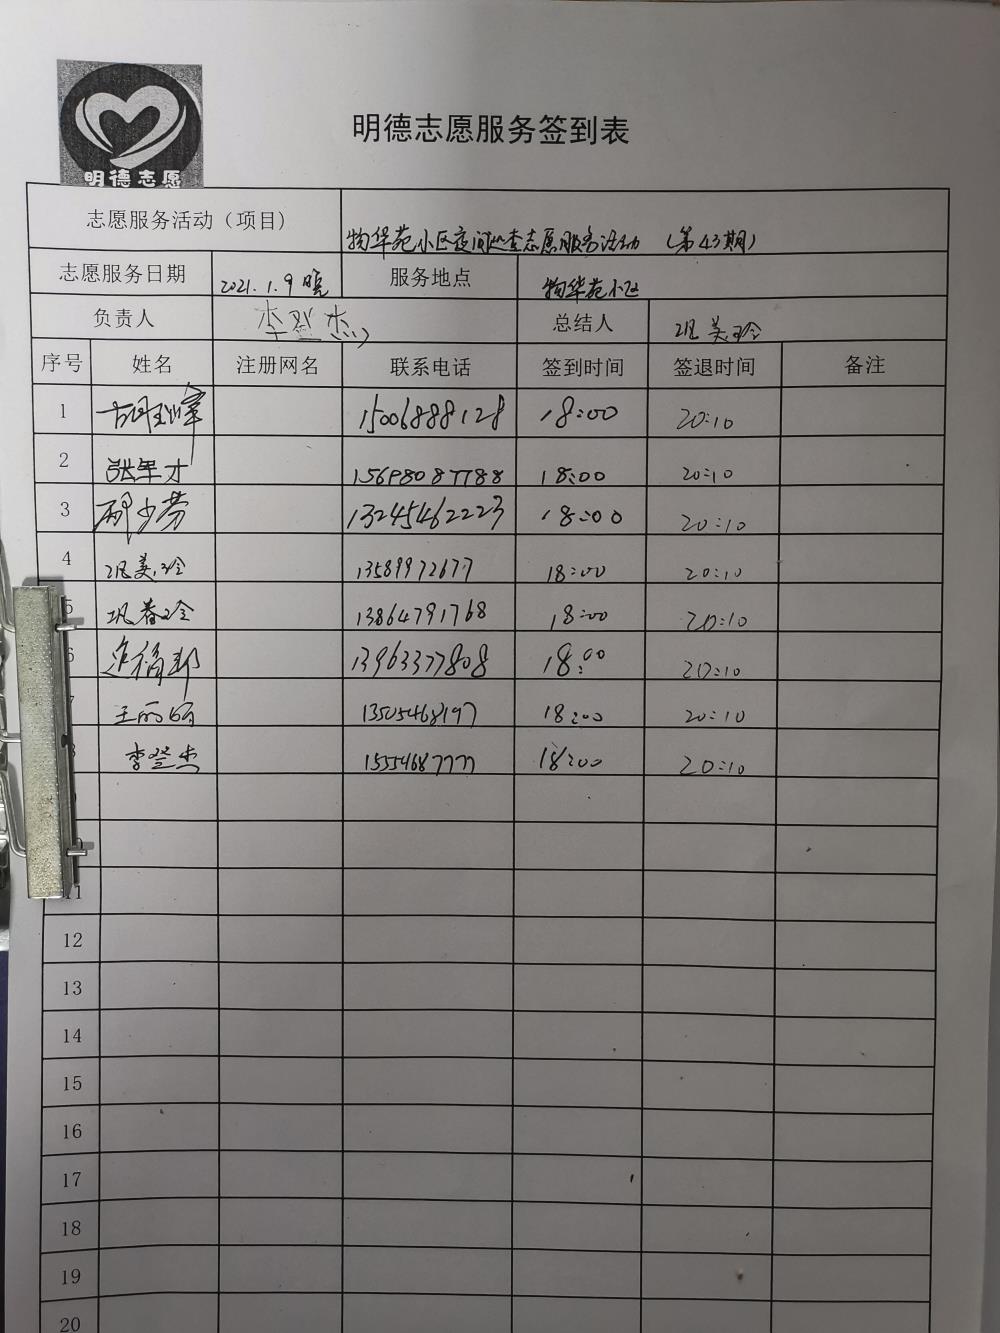 明德志愿
明德志愿服务签到表
志愿服务活动（项目） 物华苑小区夜间巡查志愿服务活动 （第43期）
志愿服务日期 2021.1.9晚 服务地点 物华苑小区
负责人 李登杰 总结人 巩美玲
序号 姓名 注册网名 联系电话 签到时间 签退时间 备注
1 15006888128 18:00 20:10
2 15698087788 18:00 20:10
3 邴少芳 13245462223 18:00 20:10
4 巩美玲 13589972677 18:00 20:10
5 巩春玲 13864791768 18:00 20:10
6 13963377808 18:00 20:10
7 王丽娟 13505468197 18:00 20:10
8 李登杰 15554687777 18:00 20:10
11
12
13
14
15
16
17
18
19
20